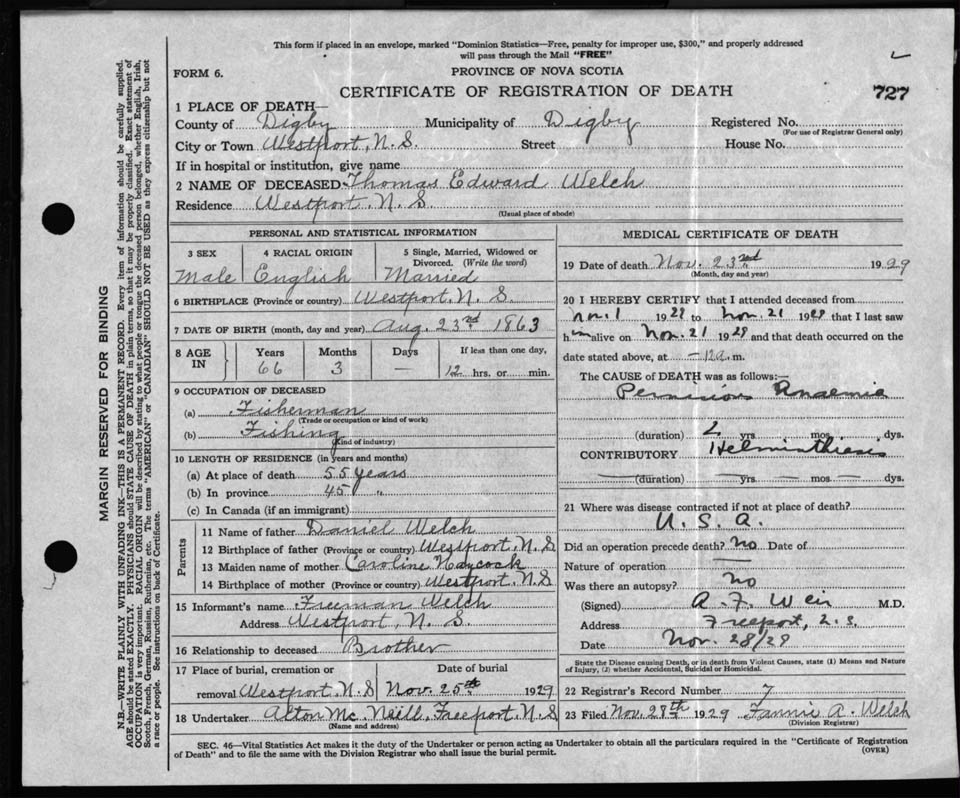 This form if placed in an envelope, marked "Dominion Statistics—Free, penalty for improper use, $300," and properly addressed
will pass through the Mail "FREE"
FORM 6.
PROVINCE OF NOVA SCOTIA
CERTIFICATE OF REGISTRATION OF DEATH
727
1 PLACE OF DEATH—
County of Digby Municipality of Digby Registered No.
(For use of Registrar General only)
City or Town Westport, N. S. Street House No.
If in hospital or institution, give name
2 NAME OF DECEASED Thomas Edward Welch
Residence Westport, N. S.
(Usual place of abode)
PERSONAL AND STATISTICAL INFORMATION
3 SEX 4 RACIAL ORIGIN 5 Single, Married, Widowed or
Divorced. (Write the word)
Male English Married
6 BIRTHPLACE (Province or country) Westport, N. S.
7 DATE OF BIRTH (month, day and year) Aug. 23rd 1863
8 AGE IN Years Months Days If less than one day,
66 3 — 12 hrs. or min.
9 OCCUPATION OF DECEASED
(a) Fisherman
(Trade or occupation or kind of work)
(b) Fishing
(Kind of industry)
10 LENGTH OF RESIDENCE (in years and months)
(a) At place of death 55 years
(b) In province 45 "
(c) In Canada (if an immigrant)
Parents
11 Name of father Daniel Welch
12 Birthplace of father (Province or country) Westport, N. S
13 Maiden name of mother Caroline Haycock
14 Birthplace of mother (Province or country) Westport, N. S
15 Informant's name Freeman Welch
Address Westport, N. S.
16 Relationship to deceased Brother
17 Place of burial, cremation or Date of burial
removal Westport, N. S Nov. 25th 1929
18 Undertaker Alton Mc Neill, Freeport, N. S
(Name and address)
MEDICAL CERTIFICATE OF DEATH
19 Date of death Nov. 23rd 1929
(Month, day and year)
20 I HEREBY CERTIFY that I attended deceased from
Nov. 1 1929 to Nov. 21 1929 that I last saw
him alive on Nov. 21 1929 and that death occurred on the
date stated above, at — 12 a. m.
The CAUSE of DEATH was as follows:—
Pernicious Anaemia
(duration) 2 yrs. mos. dys.
CONTRIBUTORY Helminthiasis
(duration) yrs. mos. dys.
21 Where was disease contracted if not at place of death?
U. S. A.
Did an operation precede death? No Date of
Nature of operation —
Was there an autopsy? No
(Signed) A. F. Weir M.D.
Address Freeport, N. S.
Date Nov. 28/29
State the Disease causing Death, or in death from Violent Causes, state (1) Means and Nature
of Injury, (2) whether Accidental, Suicidal or Homicidal.
22 Registrar's Record Number 7
23 Filed Nov. 28th 1929 Fannie A. Welch
(Division Registrar)
SEC. 46—Vital Statistics Act makes it the duty of the Undertaker or person acting as Undertaker to obtain all the particulars required in the "Certificate of Registration
of Death" and to file the same with the Division Registrar who shall issue the burial permit.
(OVER)
MARGIN RESERVED FOR BINDING
N.B.—WRITE PLAINLY WITH UNFADING INK—THIS IS A PERMANENT RECORD. Every item of information should be carefully supplied.
AGE should be stated EXACTLY. PHYSICIANS should STATE CAUSE OF DEATH in plain terms, so that it may be properly classified. Exact statement of
OCCUPATION is very important. RACIAL ORIGIN will be described by stating to what people or tongue the deceased person belonged, whether English, Irish,
Scotch, French, German, Russian, Ruthenian, etc. The terms "AMERICAN" or "CANADIAN" SHOULD NOT BE USED as they express citizenship but not
a race or people. See instructions on back of Certificate.